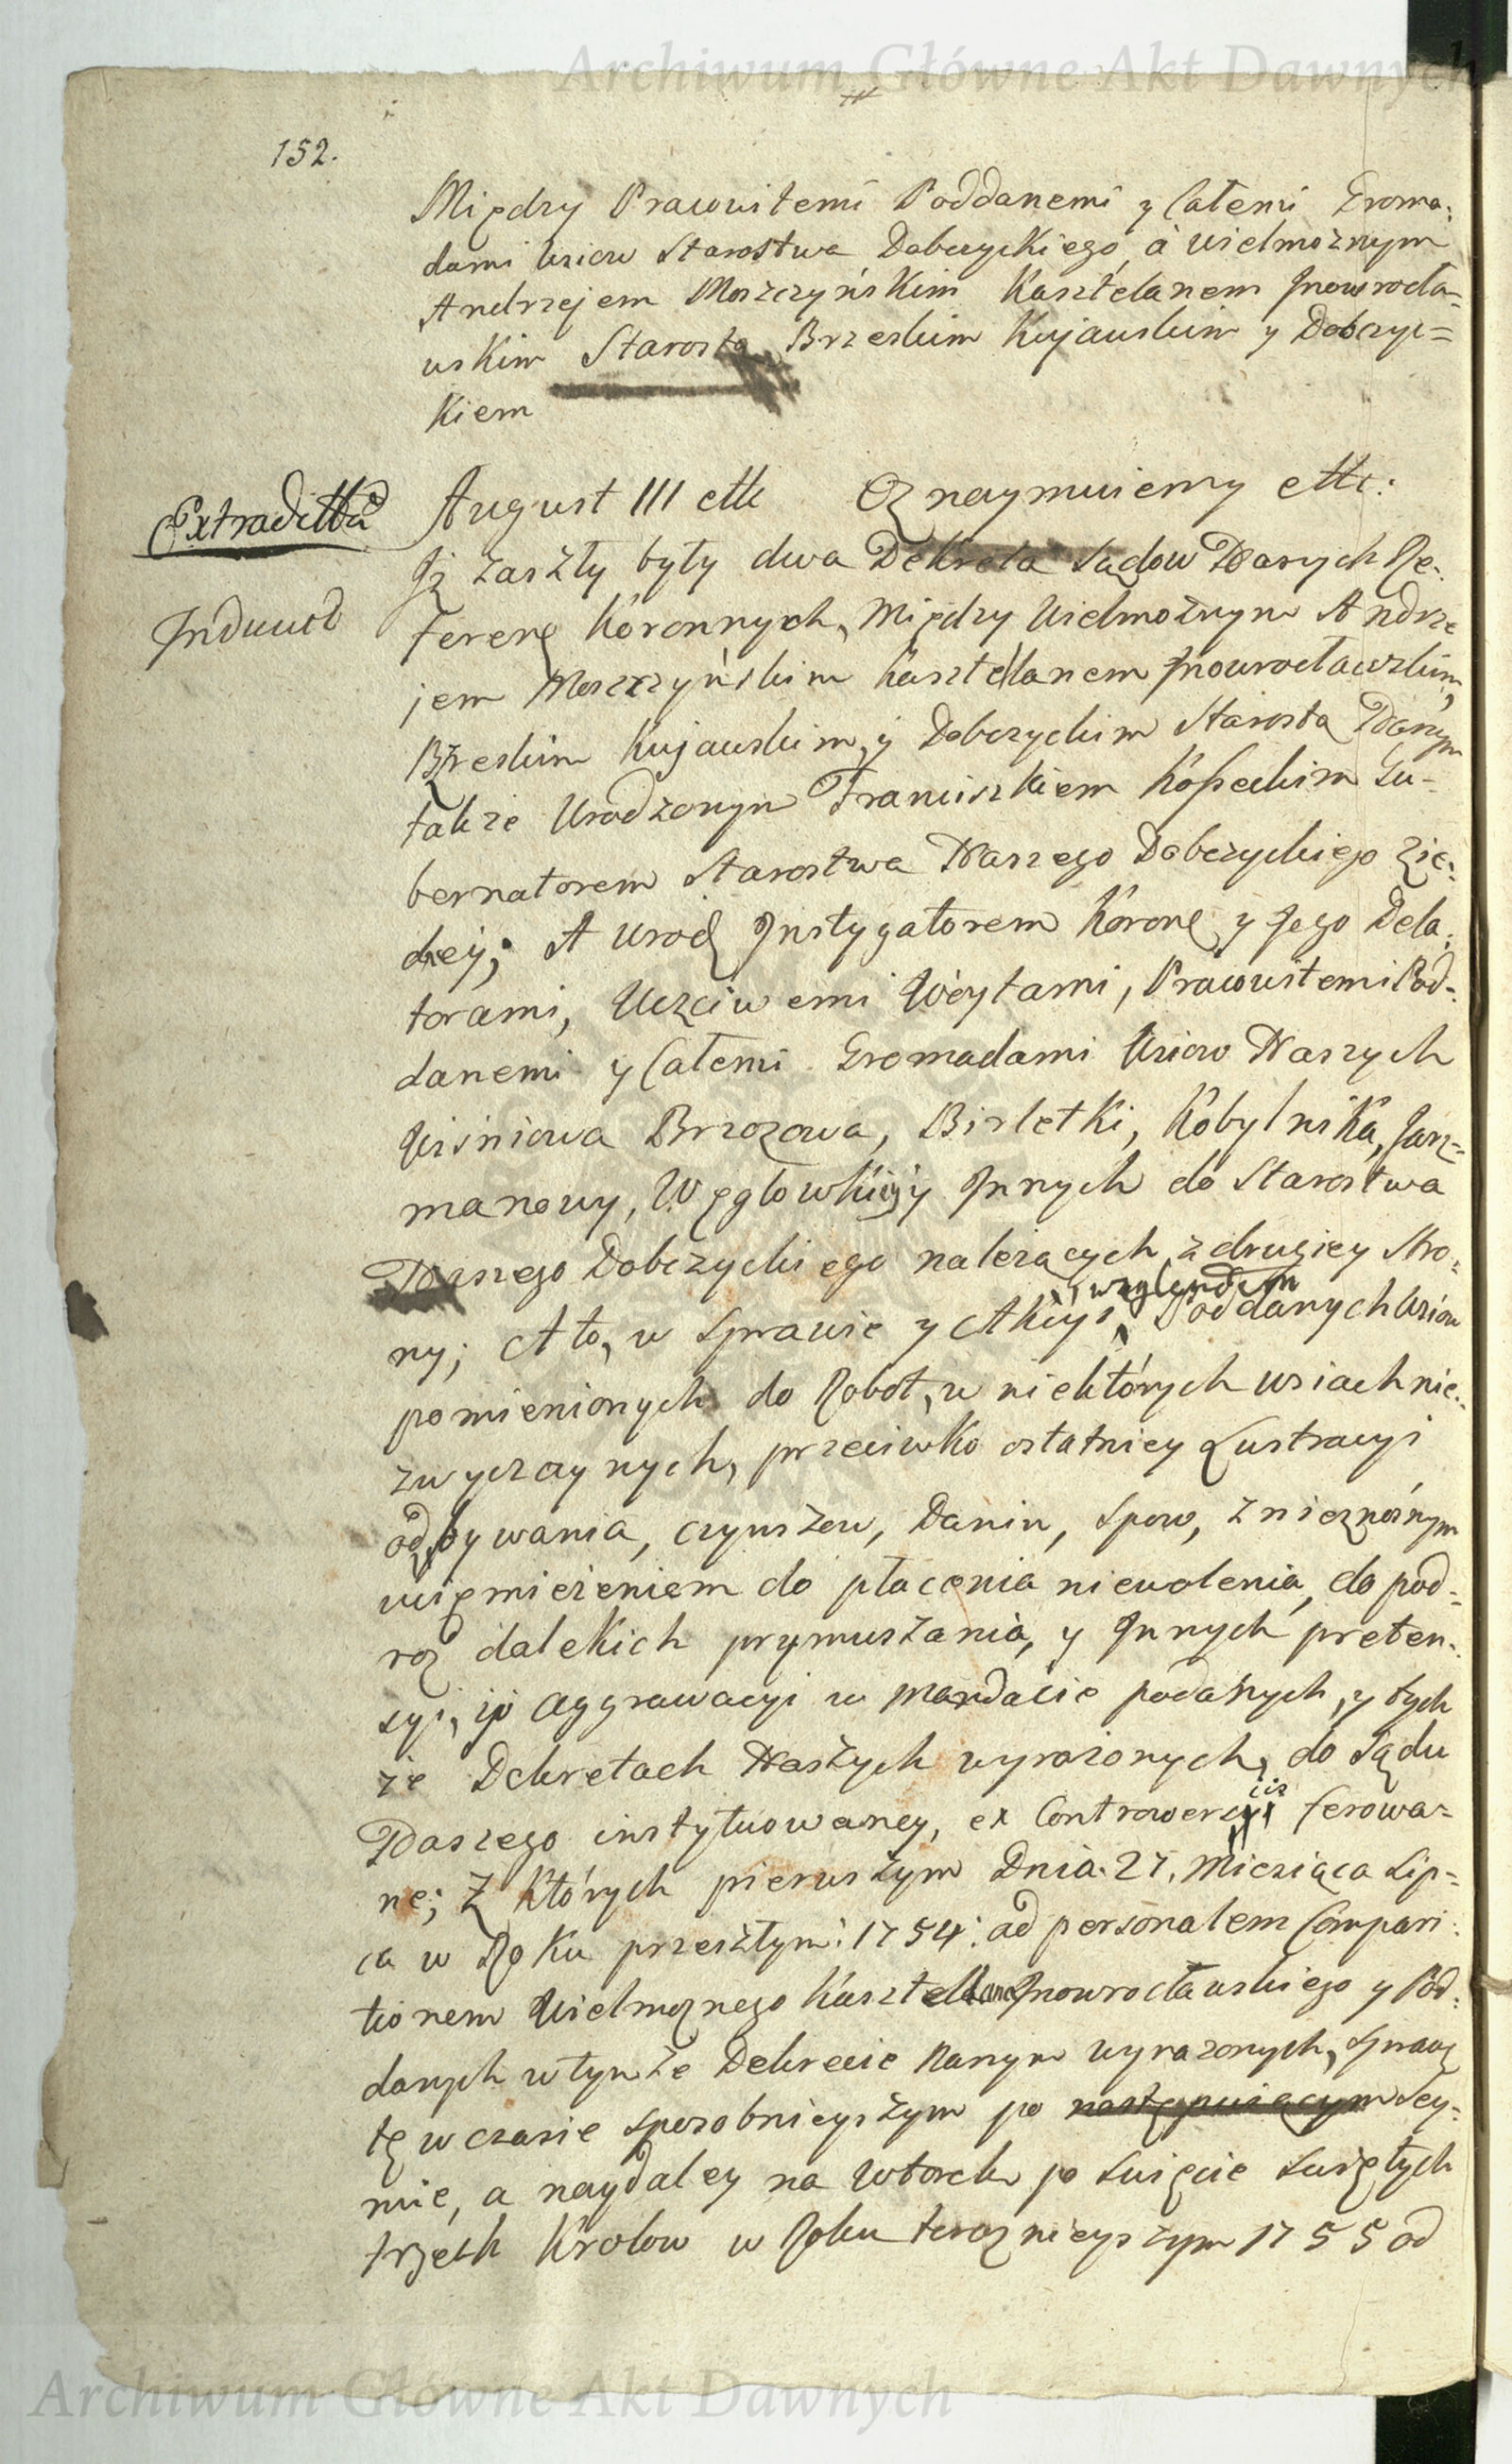 Archiwum Główne Akt Dawnych
152.
Między Prawowitemi Poddanemi y Całemi Groma-
dami Wsiow Starostwa Dobczyckiego, a Wielmożnym
Andrzejem Moszczyńskim Kasztelanem Jnowrocła-
wskim Starostą Brzeskim Kujawskim y Dobczyc-
kiem
Extradittũ
August III ettc Oznaymuiemy ettc:
Jż zaszły były dwa Dekreta Sądow Naszych Re-
Induũt
feren Koronnych, między Wielmożnym Andrze
jem Moszczyńskim Kasztellanem Jnowrocławskim,
Brzeskim Kujawskim, y Dobczyckim Starostą Danym
także Urodzonym Franciszkiem Kosseckim Gu-
bernatorem Starostwa Naszego Dobczyckiego zie-
dney; A Urod Jnstygatorem Koron y Jego Dela-
torami, Uczciwemi Woytami, Prawowitemi Pod-
danemi y Całemi Gromadami Wsiow Naszych
Wiśniowa Brzozowa, Bisletki, Kobylnika, Jasz-
manowy, Węglowki y Jnnych do Starostwa
Naszego Dobczyckiego należących z drugiey Stro-
ny; A to, w Sprawie y Akcyi, względem Poddanych Wsiow
pomienionych do Robot, w niektórych wsiach nie-
zwyczaynych, przeciwko ostatniey Lustracyi
odbywania, czynszow, Danin, Spow, z nieznośnym
wiemierzeniem do płacenia niewolenia, do pod-
roż dalekich prymuszania, y Jnnych preten-
syi, y aggrawacyi w mandacie podanych, y tych
że Dekretach Naszych wyrażonych, do Sądu
Naszego instytuowaney, ex Controwersiis ferowa-
ne; Z których pierwszym Dnia 27. Miesiąca Lip-
ca w Roku przeszłym 1754: ad personalem Compari-
tionem Wielmożnego Kasztellana Jnowrocławskiego y Pod-
danych w tymże Dekrecie Naszym wyrażonych, Sprawę
tę w czasie sposobnieyszym po następuiącym Sey-
mie, a naydaley na Wtorek po Swięcie Swiętych
trzech Krolow w Roku teraznieyszym 1755 od
Archiwum Główne Akt Dawnych